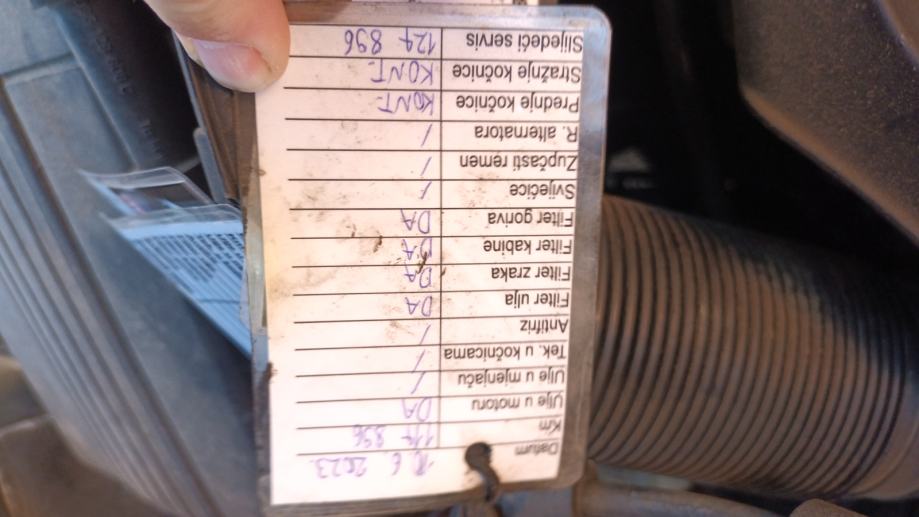 Datum 2023.
Km 117 896
Ulje u motoru DA
Ulje u mjenjaču /
Tek. u kočnicama /
Antifriz /
Filter ulja DA
Filter zraka DA
Filter kabine DA
Filter goriva DA
Svijećice /
Zupčasti remen /
R. alternatora /
Prednje kočnice KONT.
Stražnje kočnice KONT.
Slijedeći servis 127 896